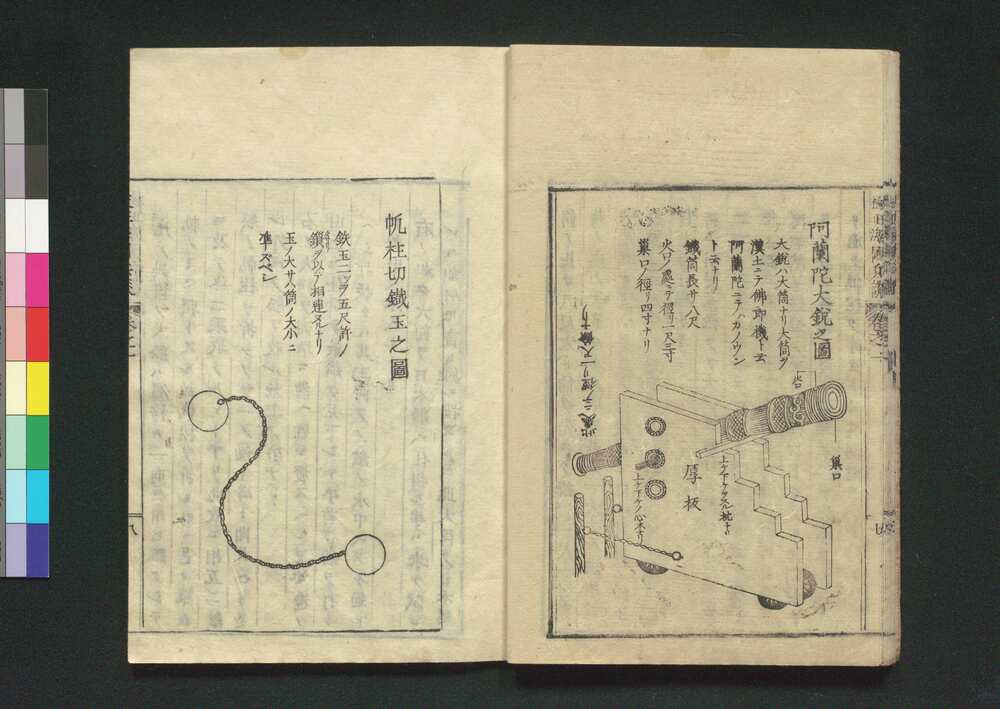 阿蘭陀大銃之圖
大銃ハ大筒ナリ大筒ヲ
漢土ニテ佛郎機ト云
阿蘭陀ニテハカノウン
ト云ナリ
鐵筒長サ八尺
火口ノ處ニテ徑リ一尺三寸
巢口ノ徑リ四寸ナリ
火口
巢口
厚板
此處ニテノ徑リ一尺餘ナリ
帆柱切鐵玉之圖
鉄玉二ヲ五尺許ノ
鎖ヲ以テ相連ヌルナリ
玉ノ大サハ筒ノ大小ニ
準スベシ